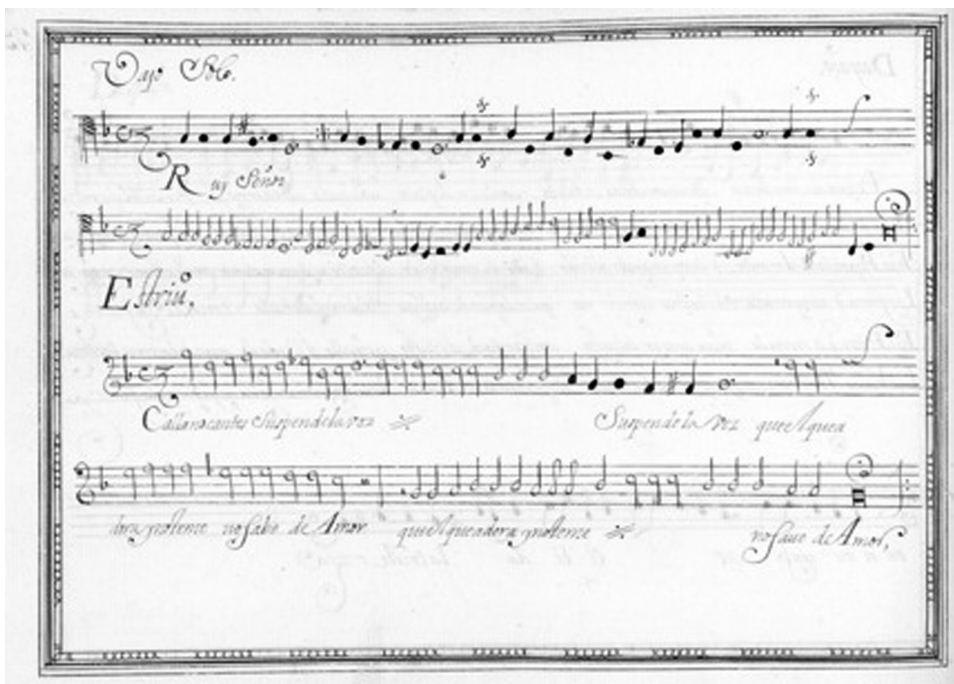 Vajo Solo.
Ruy Señor
Estriuº.
Calla no cantes suspende la voz Suspende la voz que el que a
dora y no teme no sabe de Amor que el que adora y no teme no saue de Amor.